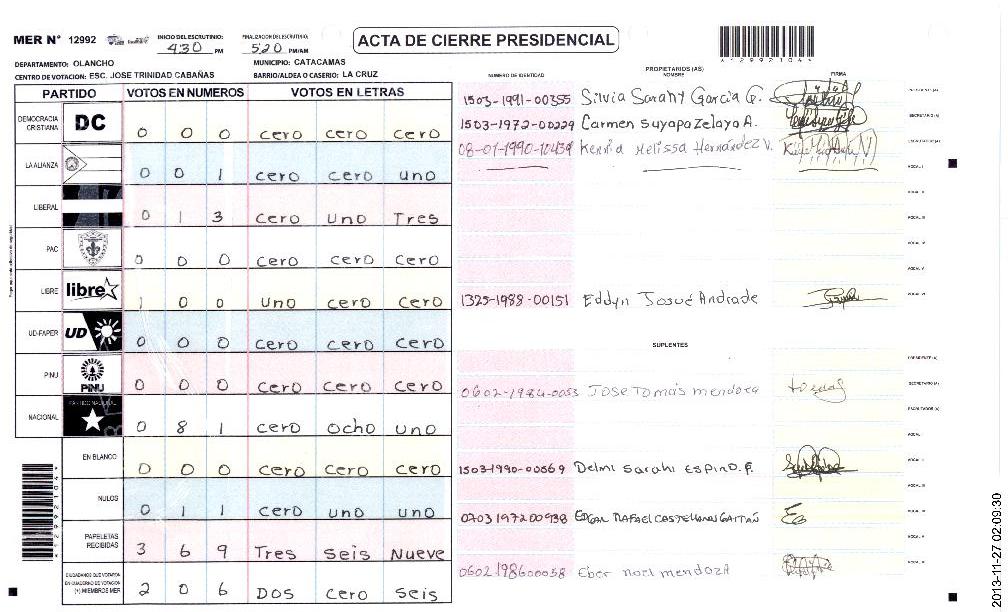 MER N° 12992
INICIO DEL ESCRUTINIO: 4:30 PM
FINALIZACION DEL ESCRUTINIO: 5:20 PM/AM
ACTA DE CIERRE PRESIDENCIAL
*1299210 4*
DEPARTAMENTO: OLANCHO
MUNICIPIO: CATACAMAS
CENTRO DE VOTACION: ESC. JOSE TRINIDAD CABAÑAS
BARRIO/ALDEA O CASERIO: LA CRUZ
PARTIDO VOTOS EN NUMEROS VOTOS EN LETRAS
DEMOCRACIA CRISTIANA DC 0 0 0 cero cero cero
LA ALIANZA 0 0 1 cero cero uno
LIBERAL 0 1 3 cero uno Tres
PAC 0 0 0 cero cero cero
LIBRE libre 1 0 0 uno cero cero
UD-FAPER UD 0 0 0 cero cero cero
PINU PINU 0 0 0 cero cero cero
NACIONAL PARTIDO NACIONAL 0 8 1 cero ocho uno
EN BLANCO 0 0 0 cero cero cero
NULOS 0 1 1 cero uno uno
PAPELETAS RECIBIDAS 3 6 9 Tres seis Nueve
CIUDADANOS QUE VOTARON EN CUADERNO DE VOTACION (+) MIEMBROS MER 2 0 6 DOS cero seis
PROPIETARIOS (AS)
NUMERO DE IDENTIDAD NOMBRE FIRMA
1503-1991-00355 Silvia Sarahy Garcia G. PRESIDENTE (A)
1503-1972-00229 Carmen Suyapa Zelaya A. SECRETARIO (A)
08-01-1990-10439 Kenia Melissa Hernández V. ESCRUTADOR (A)
VOCAL I
VOCAL II
VOCAL III
VOCAL IV
VOCAL V
1325-1988-00151 Eddyn Josué Andrade VOCAL VI
SUPLENTES
PRESIDENTE (A)
0602-1984-0053 JOSE Tomás mendoza SECRETARIO (A)
ESCRUTADOR (A)
VOCAL I
1503-1990-00669 Delmi Sarahi ESPINO. F. VOCAL II
VOCAL III
0703197200938 EDGAR RAFAEL CASTELLANOS GAITAN VOCAL IV
VOCAL V
0602198600058 Eber noel mendoza VOCAL VI
2013-11-27 02:09:30